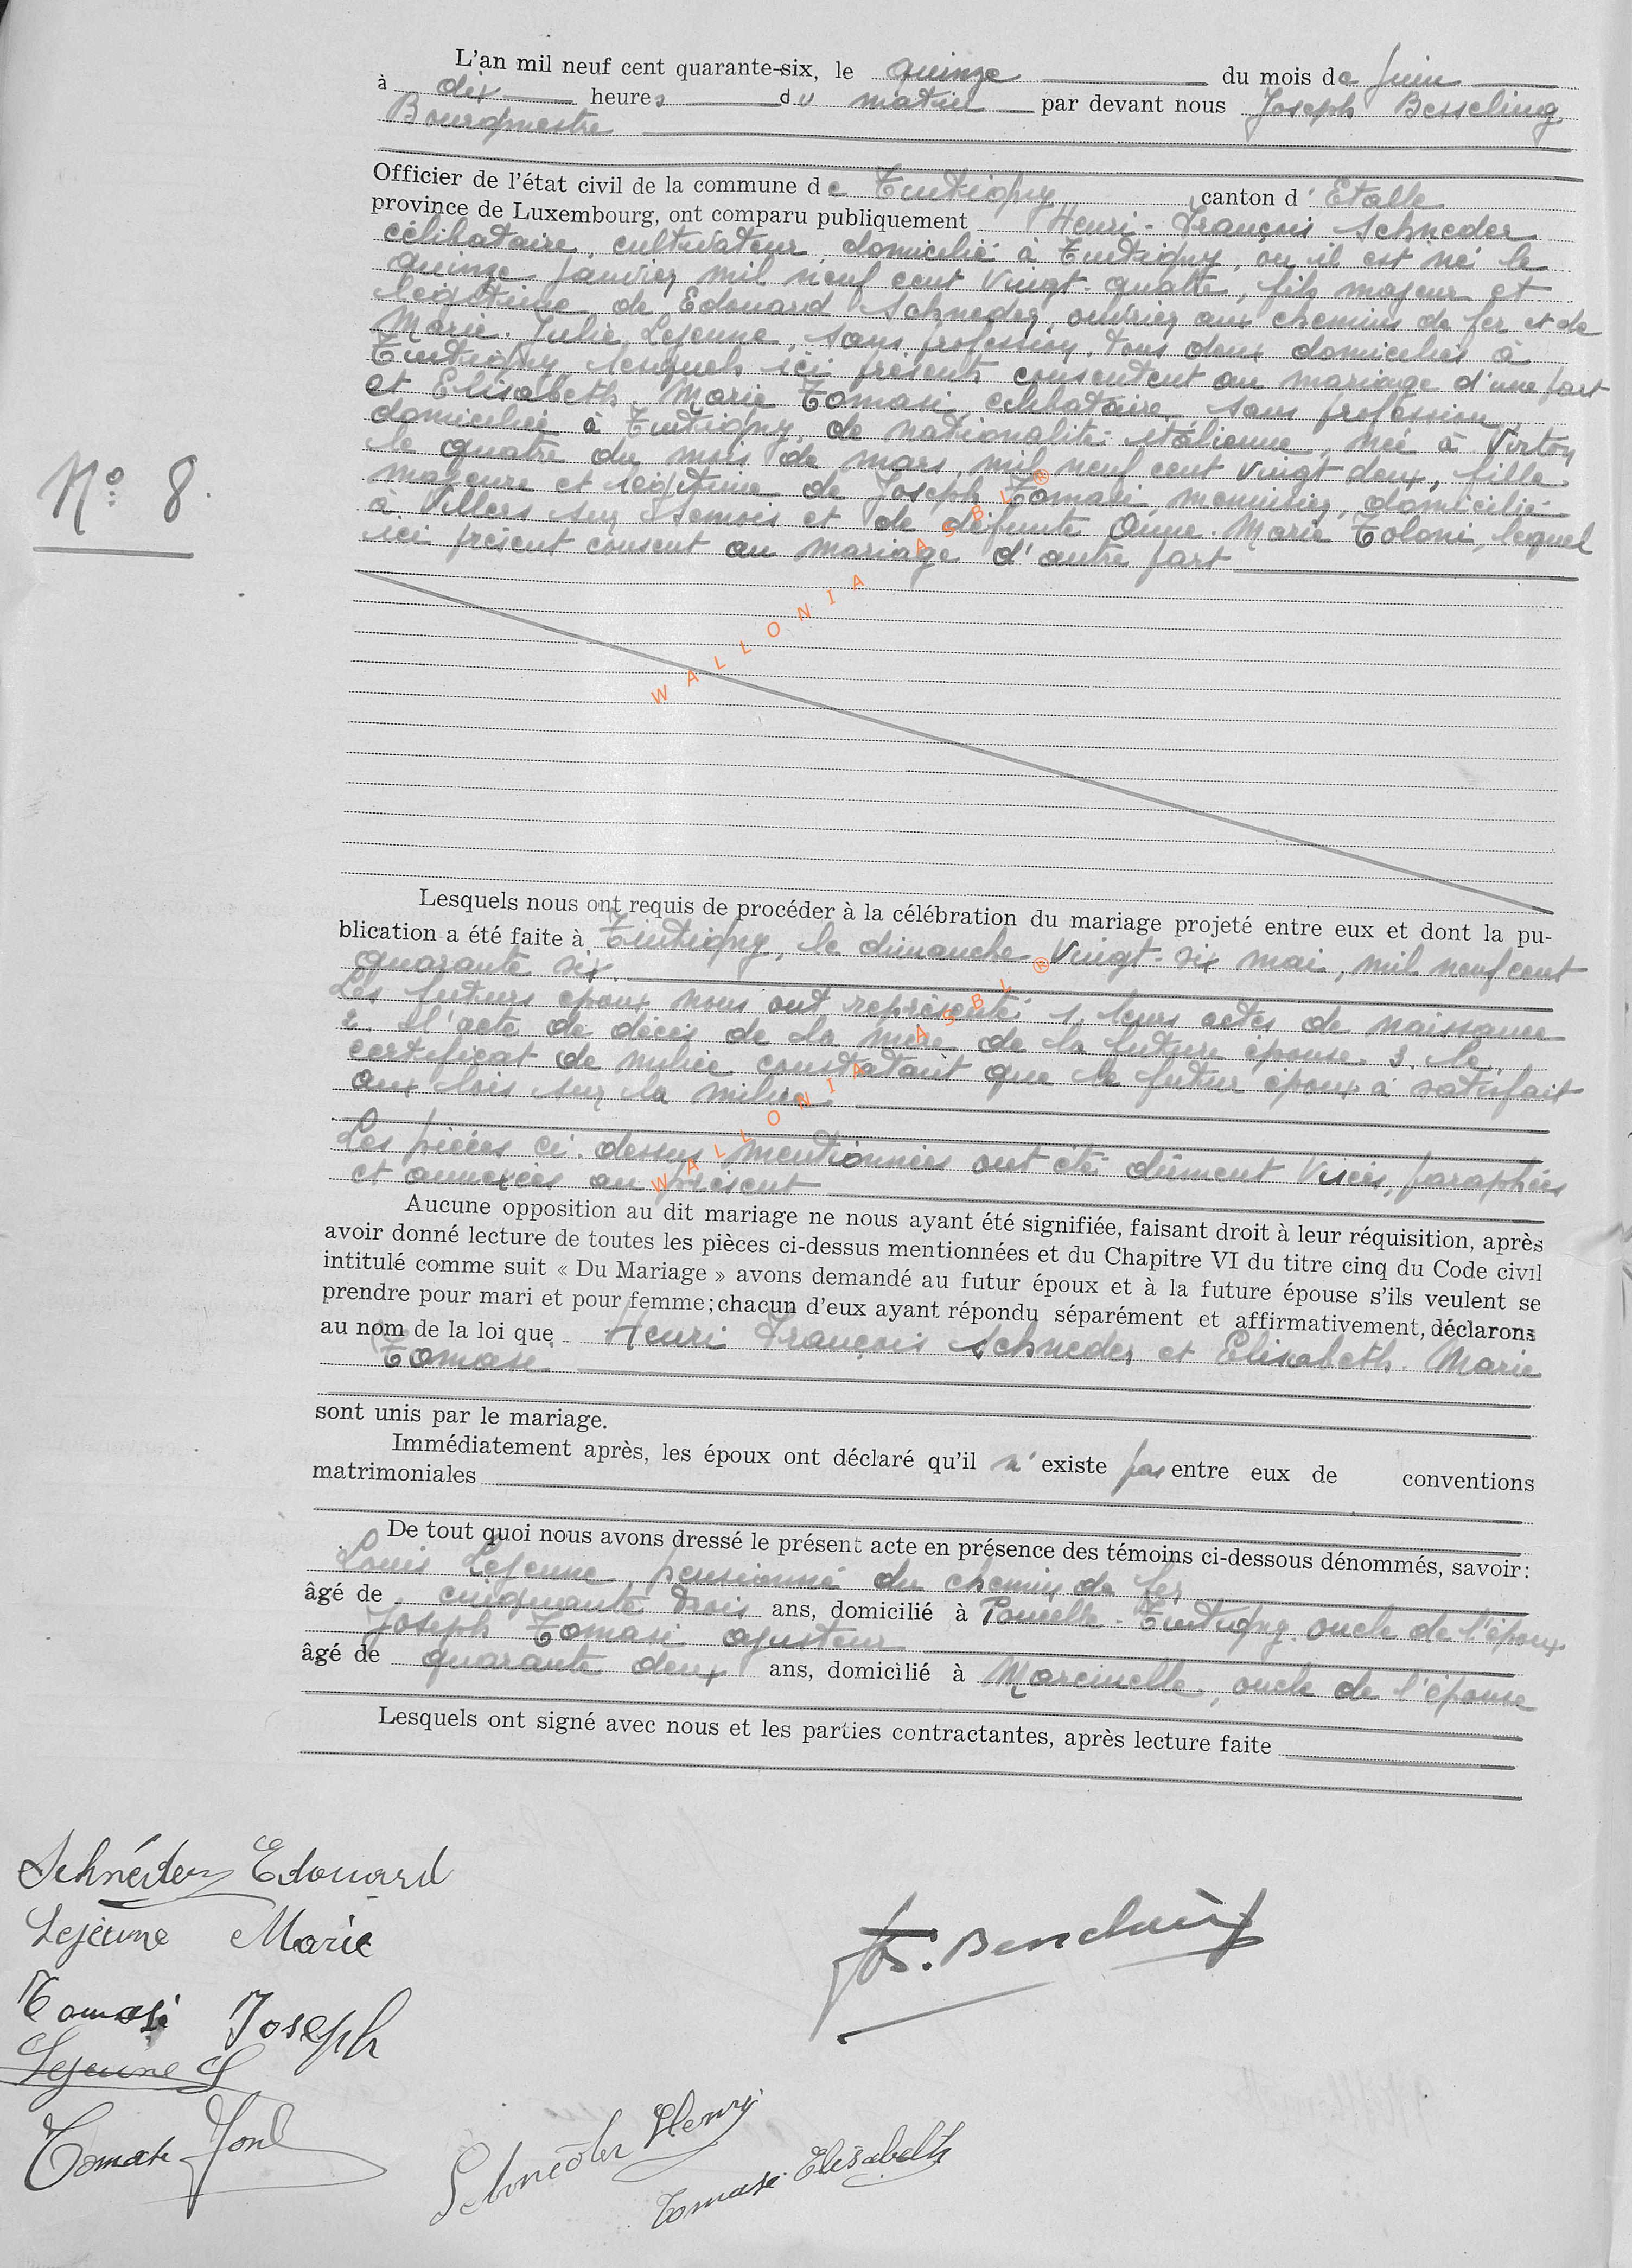 L'an mil neuf cent quarante-six, le quinze du mois de juin
à dix heures du matin par devant nous Joseph Besseling
Bourgmestre
Officier de l'état civil de la commune de Tintigny canton d'Etalle
province de Luxembourg, ont comparu publiquement Henri-François Schneder
célibataire, cultivateur, domicilié à Tintigny, ou il est né le
quinze janvier mil neuf cent vingt-quatre, fils majeur et
légitime de Edouard Schneder, ouvrier aux chemins de fer et de
Marie-Julie Lejeune, sans profession, tous deux domiciliés à
Tintigny lesquels ici présents consentent au mariage d'une part
et Elisabeth-Marie Tomasi célibataire, sans profession
domiciliée à Tintigny, de nationalité italienne, née à Virton
N° 8.
le quatre du mois de mars, mil neuf cent vingt deux, fille
majeure et légitime de Joseph Tomasi, menuisier, domicilié
à Villers sur Semois et de défunte Anne-Marie Toloni, lequel
ici présent consent au mariage d'autre part
WALLONIA ASBL ®
Lesquels nous ont requis de procéder à la célébration du mariage projeté entre eux et dont la pu-
blication a été faite à Tintigny, le dimanche vingt-six mai, mil neuf cent
quarante six.
Les futurs époux nous ont représenté 1. leurs actes de naissance
2. l'acte de décès de la mère de la future épouse. 3. le
certificat de milice constatant que le futur époux a satisfait
aux lois sur la milice.
WALLONIA ASBL ®
Les pièces ci-dessus mentionnées ont été dûment visées, paraphées
et annexées au présent
Aucune opposition au dit mariage ne nous ayant été signifiée, faisant droit à leur réquisition, après
avoir donné lecture de toutes les pièces ci-dessus mentionnées et du Chapitre VI du titre cinq du Code civil
intitulé comme suit « Du Mariage » avons demandé au futur époux et à la future épouse s'ils veulent se
prendre pour mari et pour femme; chacun d'eux ayant répondu séparément et affirmativement, déclarons
au nom de la loi que Henri François Schneder et Elisabeth-Marie
Tomasi
sont unis par le mariage.
Immédiatement après, les époux ont déclaré qu'il n'existe pas entre eux de conventions
matrimoniales
De tout quoi nous avons dressé le présent acte en présence des témoins ci-dessous dénommés, savoir:
Louis Lejeune, pensionné du chemin de fer
âgé de cinquante trois ans, domicilié à Poncelle-Tintigny. oncle de l'époux
Joseph Tomasi ajusteur
âgé de quarante deux ans, domicilié à Marcinelle, oncle de l'épouse
Lesquels ont signé avec nous et les parties contractantes, après lecture faite
Schnéder Edouard
Lejeune Marie
Tomasi Joseph
Lejeune L
Tomasi
Schnéder Henry
Tomasi Elisabeth